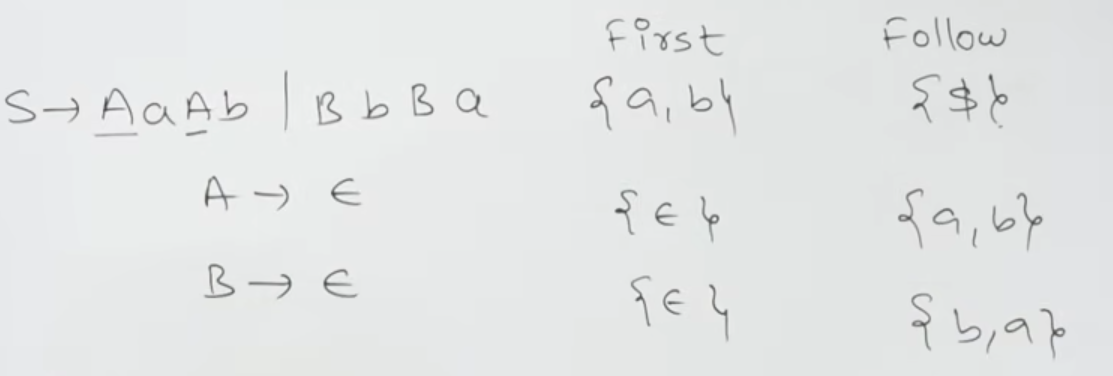 First Follow
S → AaAb | BbBa {a, b} {$}
A → ϵ {ϵ} {a, b}
B → ϵ {ϵ} {b, a}